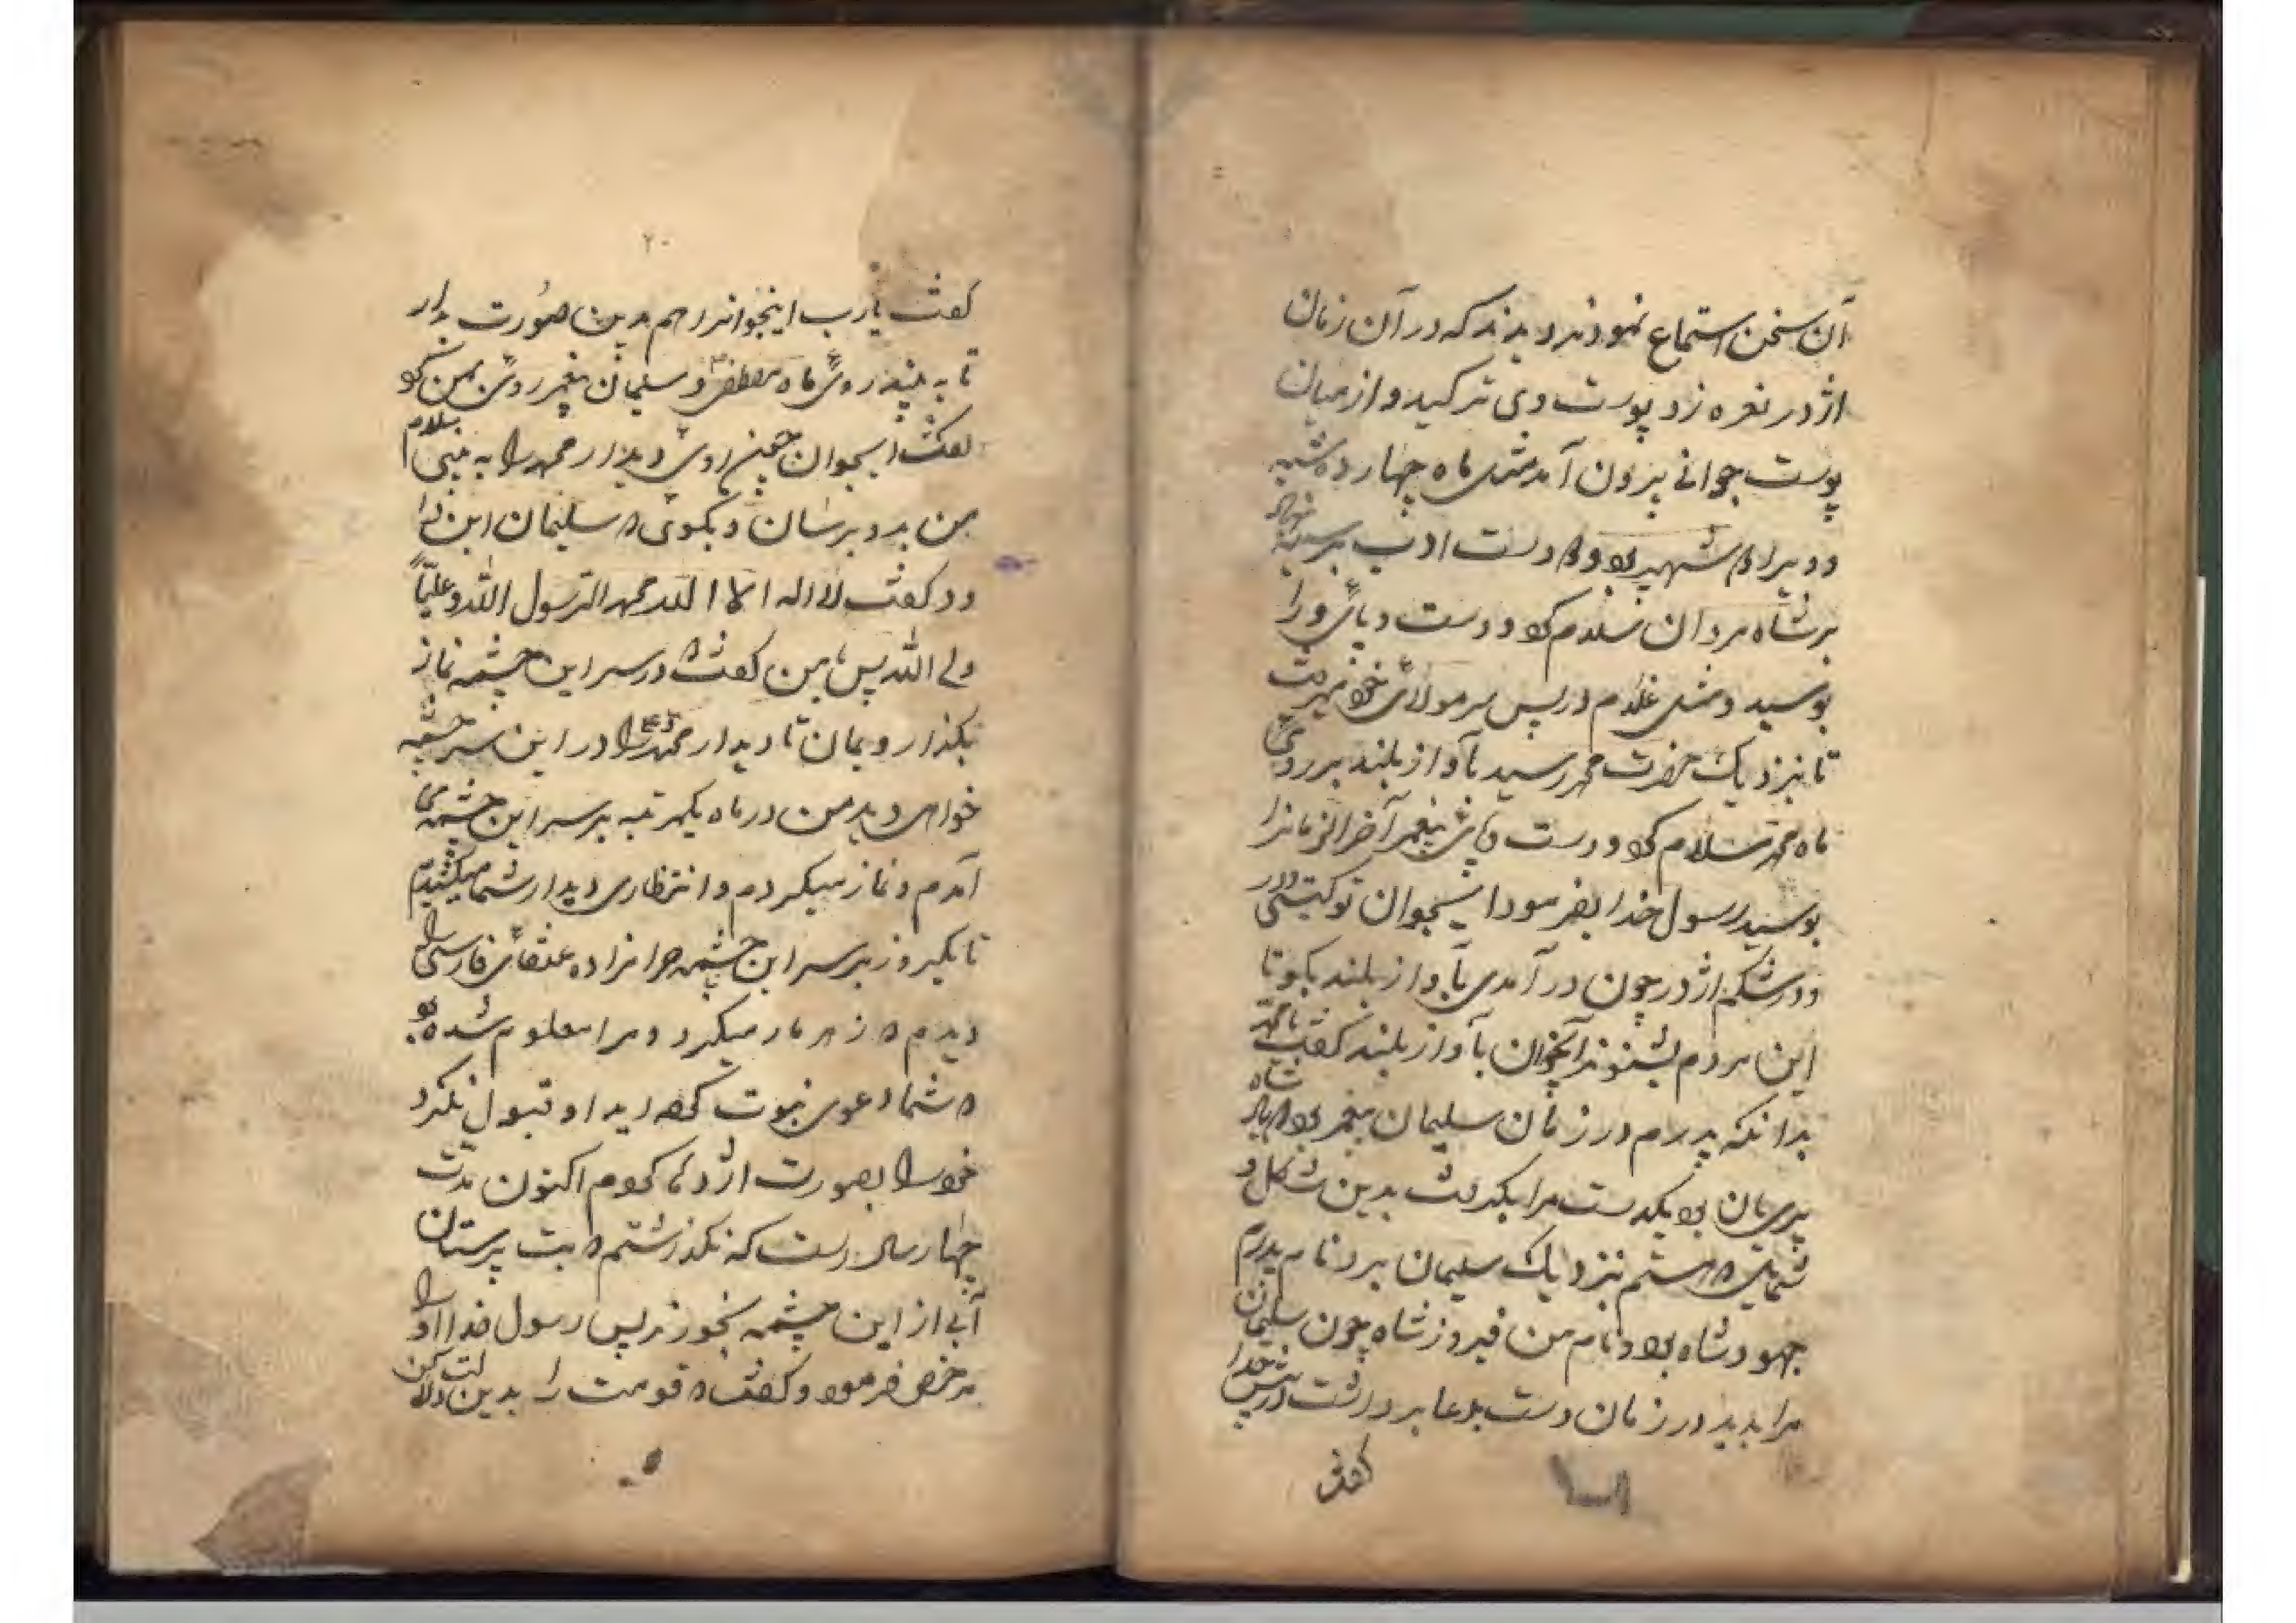 آن سخن استماع نمودند دیدند که در آن زمان
اژدر نعره زد پوست وی ترکید و از میان
پوست جوانی بیرون آمد مثل ماه چهارده شبه
دست ادب بر سینه
بر شاه مردان سلام کرد و دست و پای او را
بوسید و مثل غلام در پس سر مولای خود میرفت
تا نزدیک حضرت محمد رسید بآواز بلند بر روی
ماه محمد سلام کرد و دست و پای پیغمبر آخرالزمانرا
بوسید رسول خدا بفرمود ایجوان تو کیستی و در
در شکم اژدر چون در آمدی بآواز بلند بگو تا
این مردم بشنوند آنجوان بآواز بلند گفت یا محمد
بدانکه پدرم در زمان سلیمان پیغمبر بود شاه
پریان بود یکدست مرا بگرفت بدین شکل و
شمایل که هستم نزدیک سلیمان برد نام پدرم
جهود شاه بود و نام من فیروز شاه چون سلیمان
مرا بدید در زمان دست بدعا برداشت در پیش خدا
گفت
۲۰
گفت یارب اینجوانرا هم بدین صورت بدار
تا به بیند روی ماه مصطفی و سلیمان پیغمبر روی بمن کرد
گفت ایجوان چنین روی دیدار محمد را به بینی سلام
من بدو برسان و بگوی که سلیمان این را
دو گفت لا اله الا الله محمد الرسول الله و علیاً
ولی الله پس بمن گفت که در سر این چشمه نماز
بگذار و بمان تا دیدار محمد را در این سر چشمه
خواهی دید من در ماه یکمرتبه بر سر این چشمه می
آمدم و نماز میکردم و انتظاری دیدار شما میکشیدم
تا یکروز بر سر این چشمه حرامزاده عنقای فارسی را
دیدم که زهر مار میکرد و مرا معلوم شده بود
که شما دعوی نبوت کرده اید او قبول نکرد
خود را بصورت اژدها کردم اکنون مدت
چهار سال است که نگذاشتم که بت پرستان
آبی از این چشمه بخورند پس رسول خدا او را
مرخص فرمود و گفت که قومت را بدین دلالت کن